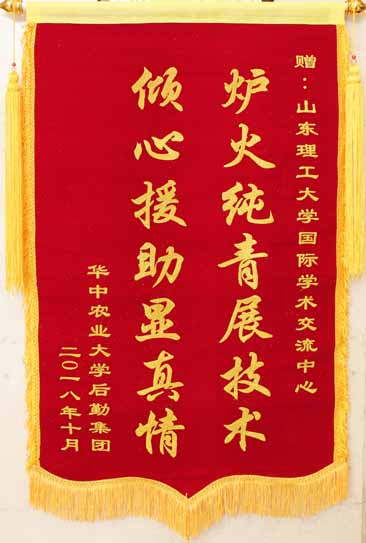 赠：山东理工大学国际学术交流中心
炉火纯青展技术
倾心援助显真情
华中农业大学后勤集团
二〇一八年十月